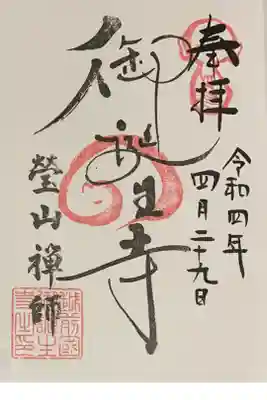 奉拝
令和四年
四月二十九日
御誕生寺
瑩山禅師
越前國
御誕生
寺之印